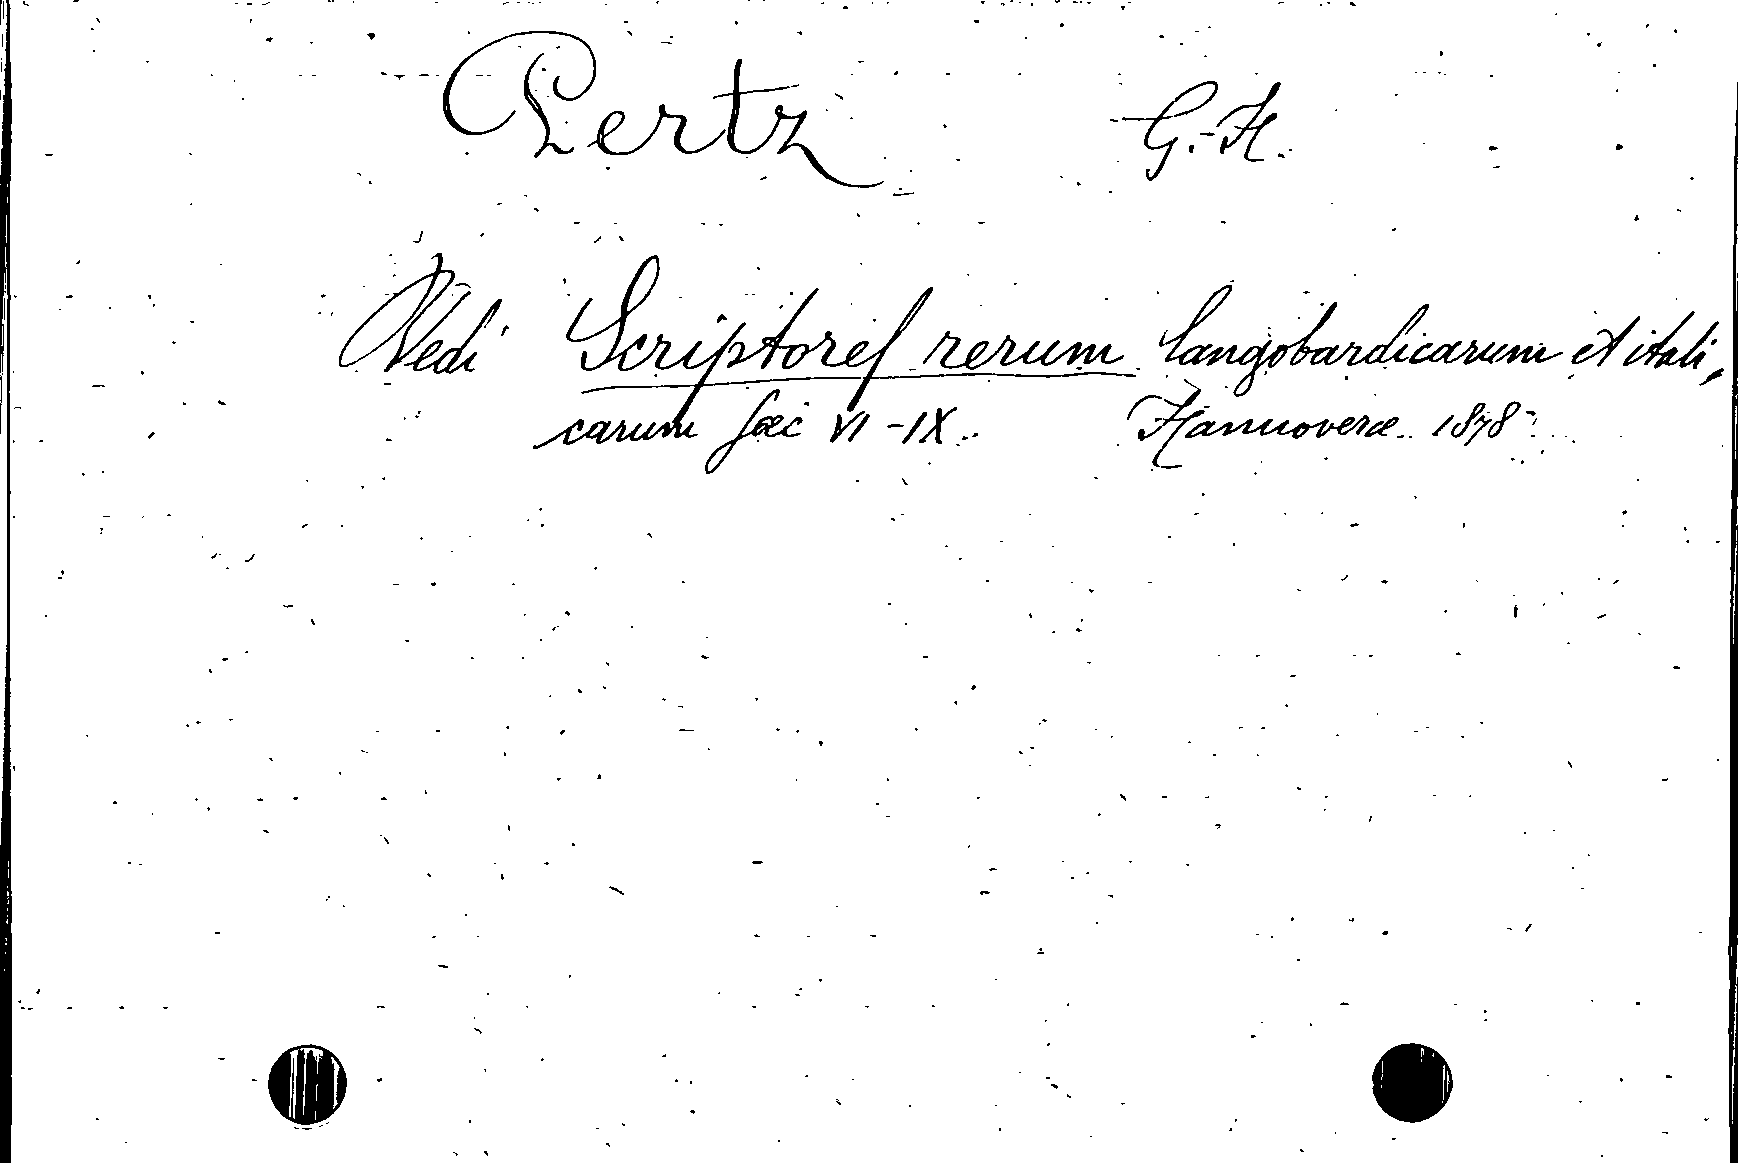 Pertz G.-H.
Vedi Scriptores rerum langobardicarum et itali,
carum sæc VI-IX. Hannoveræ. 1878